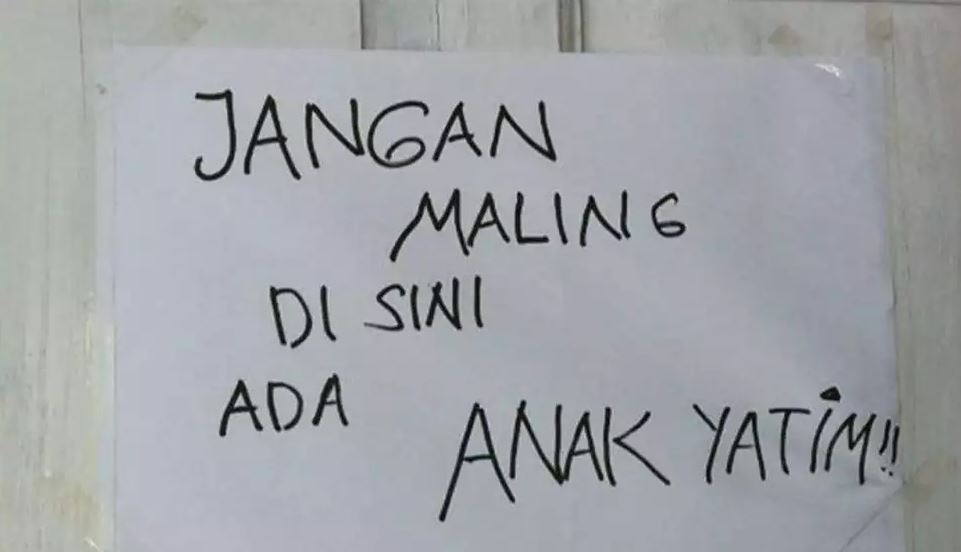 JANGAN
MALING
DI SINI
ADA ANAK YATiM!!